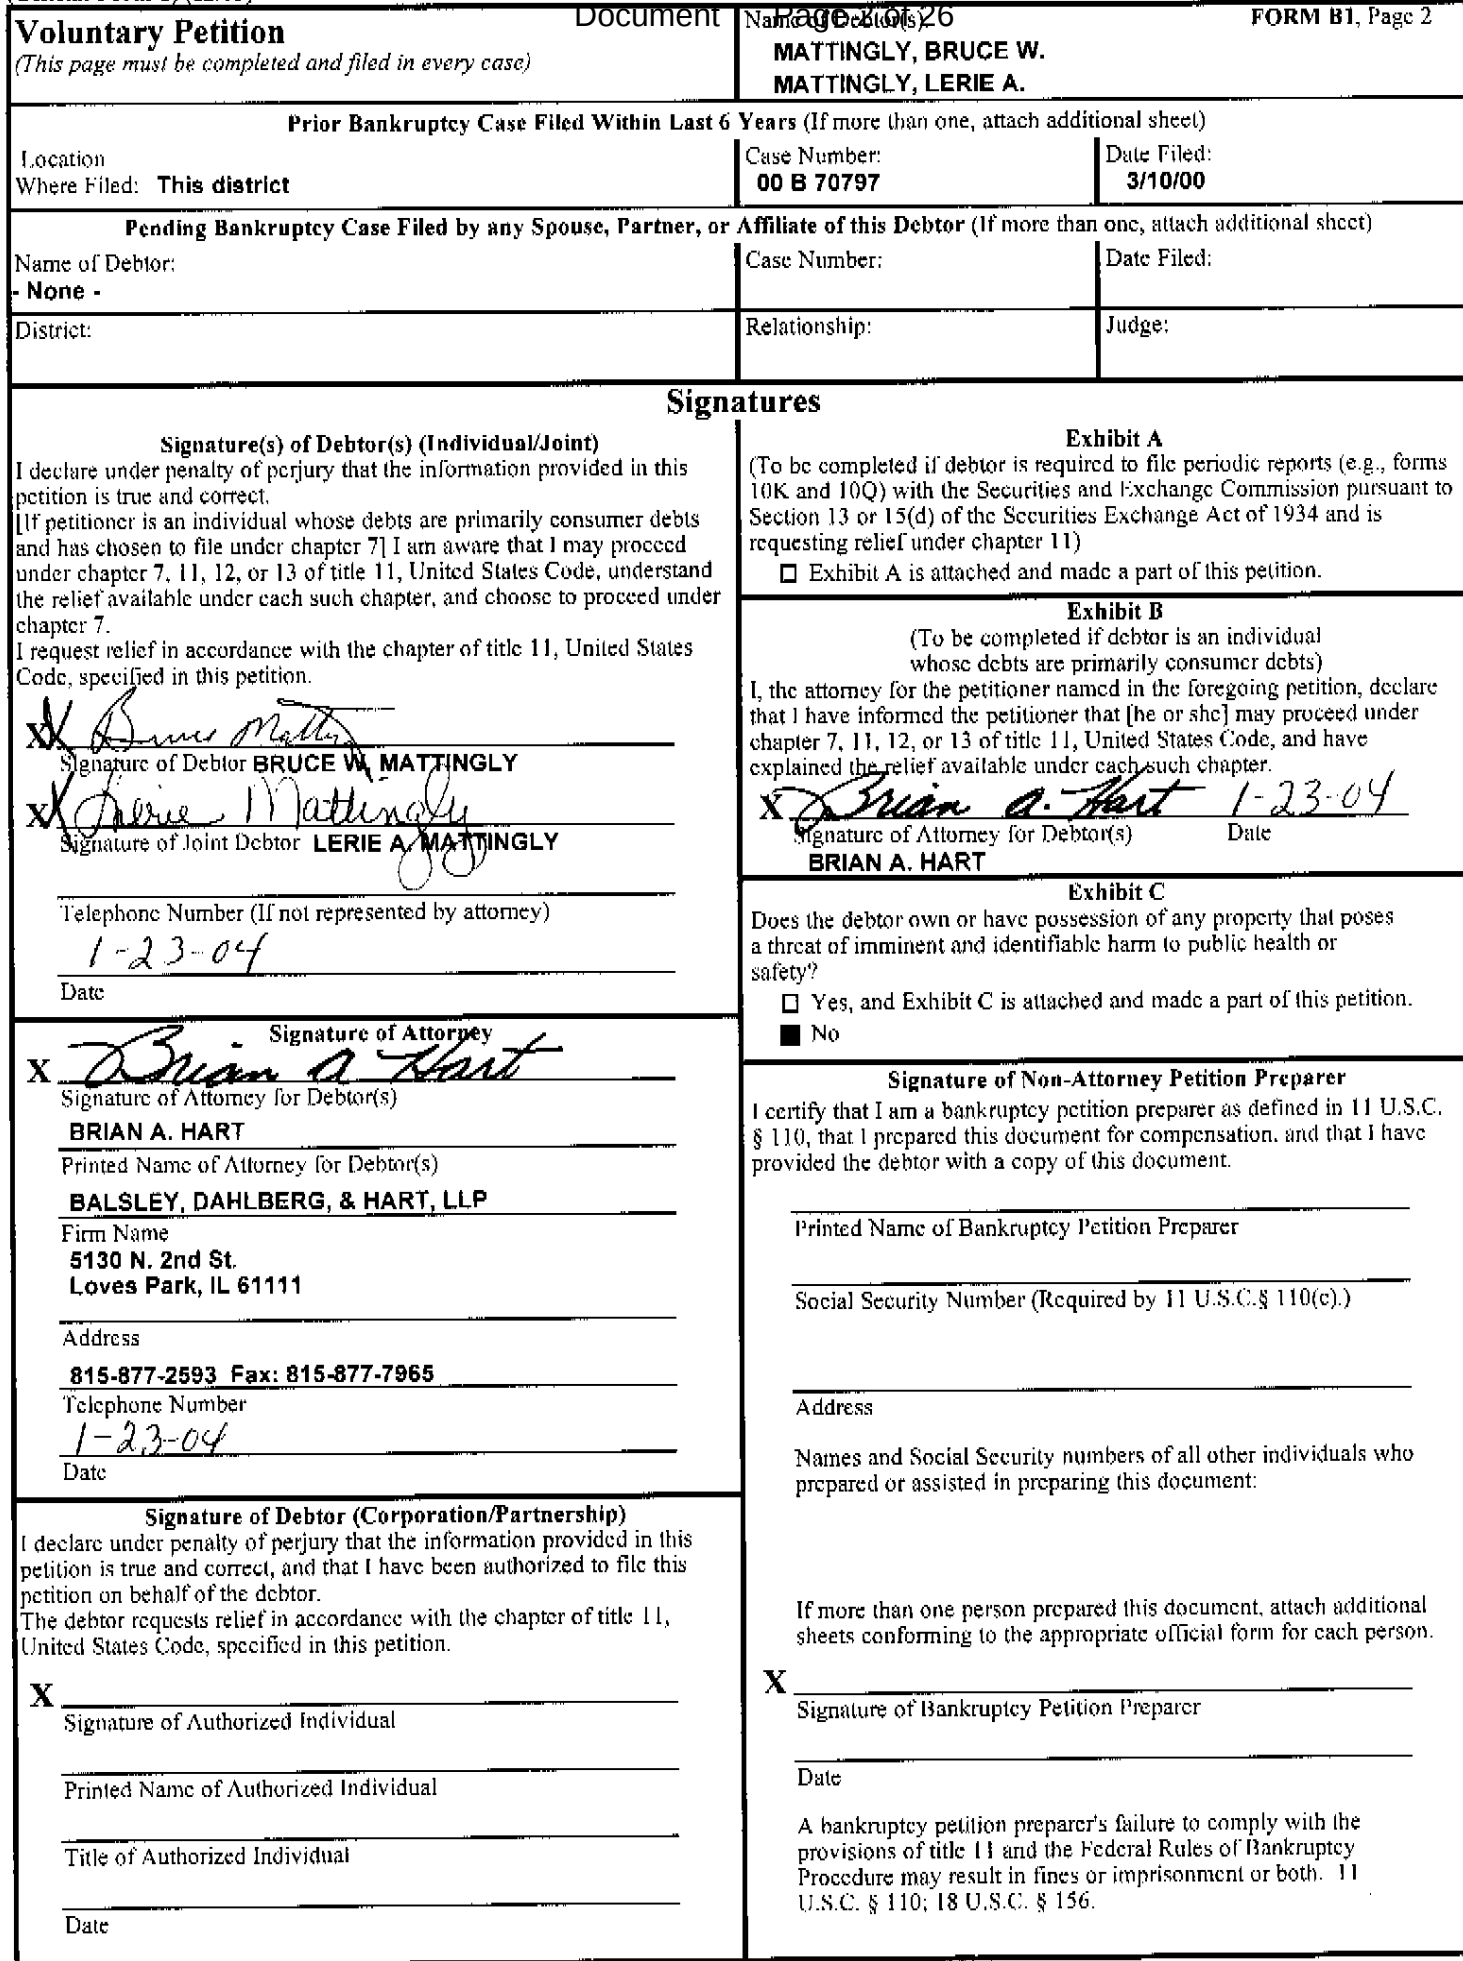 Document Page 2 of 26
Voluntary Petition
(This page must be completed and filed in every case)
Name of Debtor(s):
FORM B1, Page 2
MATTINGLY, BRUCE W.
MATTINGLY, LERIE A.
Prior Bankruptcy Case Filed Within Last 6 Years (If more than one, attach additional sheet)
Location
Where Filed: This district
Case Number:
00 B 70797
Date Filed:
3/10/00
Pending Bankruptcy Case Filed by any Spouse, Partner, or Affiliate of this Debtor (If more than one, attach additional sheet)
Name of Debtor:
- None -
Case Number:
Date Filed:
District:
Relationship:
Judge:
Signatures
Signature(s) of Debtor(s) (Individual/Joint)
I declare under penalty of perjury that the information provided in this
petition is true and correct.
[If petitioner is an individual whose debts are primarily consumer debts
and has chosen to file under chapter 7] I am aware that I may proceed
under chapter 7, 11, 12, or 13 of title 11, United States Code, understand
the relief available under each such chapter, and choose to proceed under
chapter 7.
I request relief in accordance with the chapter of title 11, United States
Code, specified in this petition.
X Bruce Mattingly
Signature of Debtor BRUCE W. MATTINGLY
X Lerie Mattingly
Signature of Joint Debtor LERIE A. MATTINGLY
Telephone Number (If not represented by attorney)
1-23-04
Date
Signature of Attorney
X Brian A Hart
Signature of Attorney for Debtor(s)
BRIAN A. HART
Printed Name of Attorney for Debtor(s)
BALSLEY, DAHLBERG, & HART, LLP
Firm Name
5130 N. 2nd St.
Loves Park, IL 61111
Address
815-877-2593 Fax: 815-877-7965
Telephone Number
1-23-04
Date
Signature of Debtor (Corporation/Partnership)
I declare under penalty of perjury that the information provided in this
petition is true and correct, and that I have been authorized to file this
petition on behalf of the debtor.
The debtor requests relief in accordance with the chapter of title 11,
United States Code, specified in this petition.
X
Signature of Authorized Individual
Printed Name of Authorized Individual
Title of Authorized Individual
Date
Exhibit A
(To be completed if debtor is required to file periodic reports (e.g., forms
10K and 10Q) with the Securities and Exchange Commission pursuant to
Section 13 or 15(d) of the Securities Exchange Act of 1934 and is
requesting relief under chapter 11)
☐ Exhibit A is attached and made a part of this petition.
Exhibit B
(To be completed if debtor is an individual
whose debts are primarily consumer debts)
I, the attorney for the petitioner named in the foregoing petition, declare
that I have informed the petitioner that [he or she] may proceed under
chapter 7, 11, 12, or 13 of title 11, United States Code, and have
explained the relief available under each such chapter.
X Brian A. Hart 1-23-04
Signature of Attorney for Debtor(s) Date
BRIAN A. HART
Exhibit C
Does the debtor own or have possession of any property that poses
a threat of imminent and identifiable harm to public health or
safety?
☐ Yes, and Exhibit C is attached and made a part of this petition.
■ No
Signature of Non-Attorney Petition Preparer
I certify that I am a bankruptcy petition preparer as defined in 11 U.S.C.
§ 110, that I prepared this document for compensation, and that I have
provided the debtor with a copy of this document.
Printed Name of Bankruptcy Petition Preparer
Social Security Number (Required by 11 U.S.C.§ 110(c).)
Address
Names and Social Security numbers of all other individuals who
prepared or assisted in preparing this document:
If more than one person prepared this document, attach additional
sheets conforming to the appropriate official form for each person.
X
Signature of Bankruptcy Petition Preparer
Date
A bankruptcy petition preparer's failure to comply with the
provisions of title 11 and the Federal Rules of Bankruptcy
Procedure may result in fines or imprisonment or both. 11
U.S.C. § 110; 18 U.S.C. § 156.